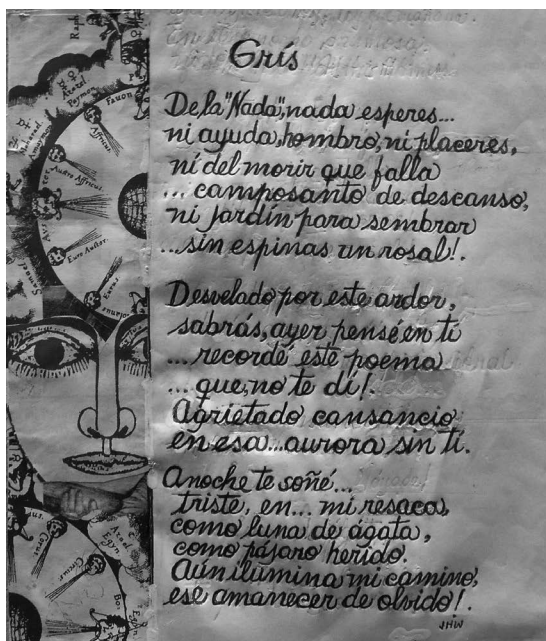 Gris
De la "Nada", nada esperes...
ni ayuda, hombro, ni placeres,
ni del morir que falla
... camposanto de descanso,
ni jardín para sembrar
...sin espinas un rosal!.
Desvelado por este ardor,
sabrás, ayer pensé en ti
...recordé este poema
...que, no te di!.
Agrietado cansancio
en esa...aurora sin ti.
Anoche te soñé...
triste, en... mi resaca,
como luna de ágata,
como pájaro herido.
Aún ilumina mi camino,
ese amanecer de olvido!.
JHW
Raph
Fauon
Affricus
Austro Affricus
Euro Auster
Eurus
Samael
Corus
Circius
Azael
Egyn